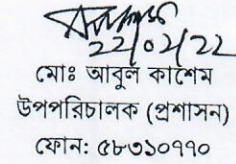 22/02/22
মোঃ আবুল কাশেম
উপপরিচালক (প্রশাসন)
ফোন: ৫৮৩১০৭৭০